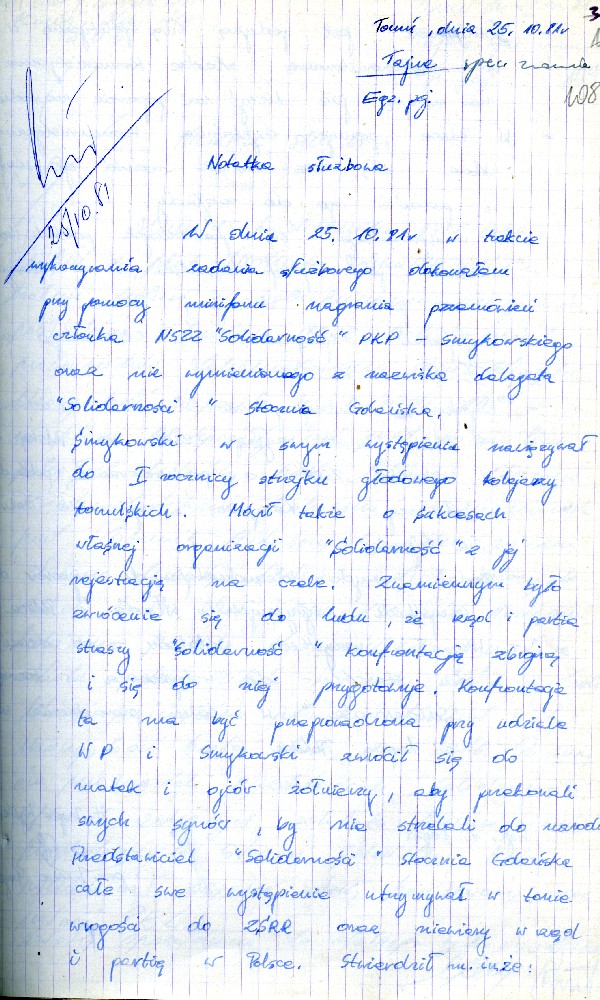 3
Toruń, dnia 25.10.81r
Tajne spec. znacz.
108
Egz. poj.
25/10.81
Notatka służbowa
W dniu 25.10.81r w trakcie
wykonywania zadania służbowego dokonałem
przy pomocy minifonu nagrania przemówień
członka NSZZ "Solidarność" PKP – Smykowskiego
oraz nie wymienionego z nazwiska delegata
"Solidarności" Stocznia Gdańska.
Smykowski w swym wystąpieniu nawiązywał
do I rocznicy strajku głodowego kolejarzy
toruńskich. Mówił także o sukcesach
własnej organizacji "Solidarność" z jej
rejestracją na czele. Znamiennym było
zwrócenie się do ludu, że rząd i partia
straszy "Solidarność" konfrontacją zbrojną
i się do niej przygotowuje. Konfrontacja
ta ma być przeprowadzona przy udziale
WP i Smykowski zwrócił się do
matek i ojców żołnierzy, aby przekonali
swych synów, by nie strzelali do narodu
Przedstawiciel "Solidarności" Stocznia Gdańska
całe swe wystąpienie utrzymywał w tonie
wrogości do ZSRR oraz niewiary w rząd
i partię w Polsce. Stwierdził m.in. że: